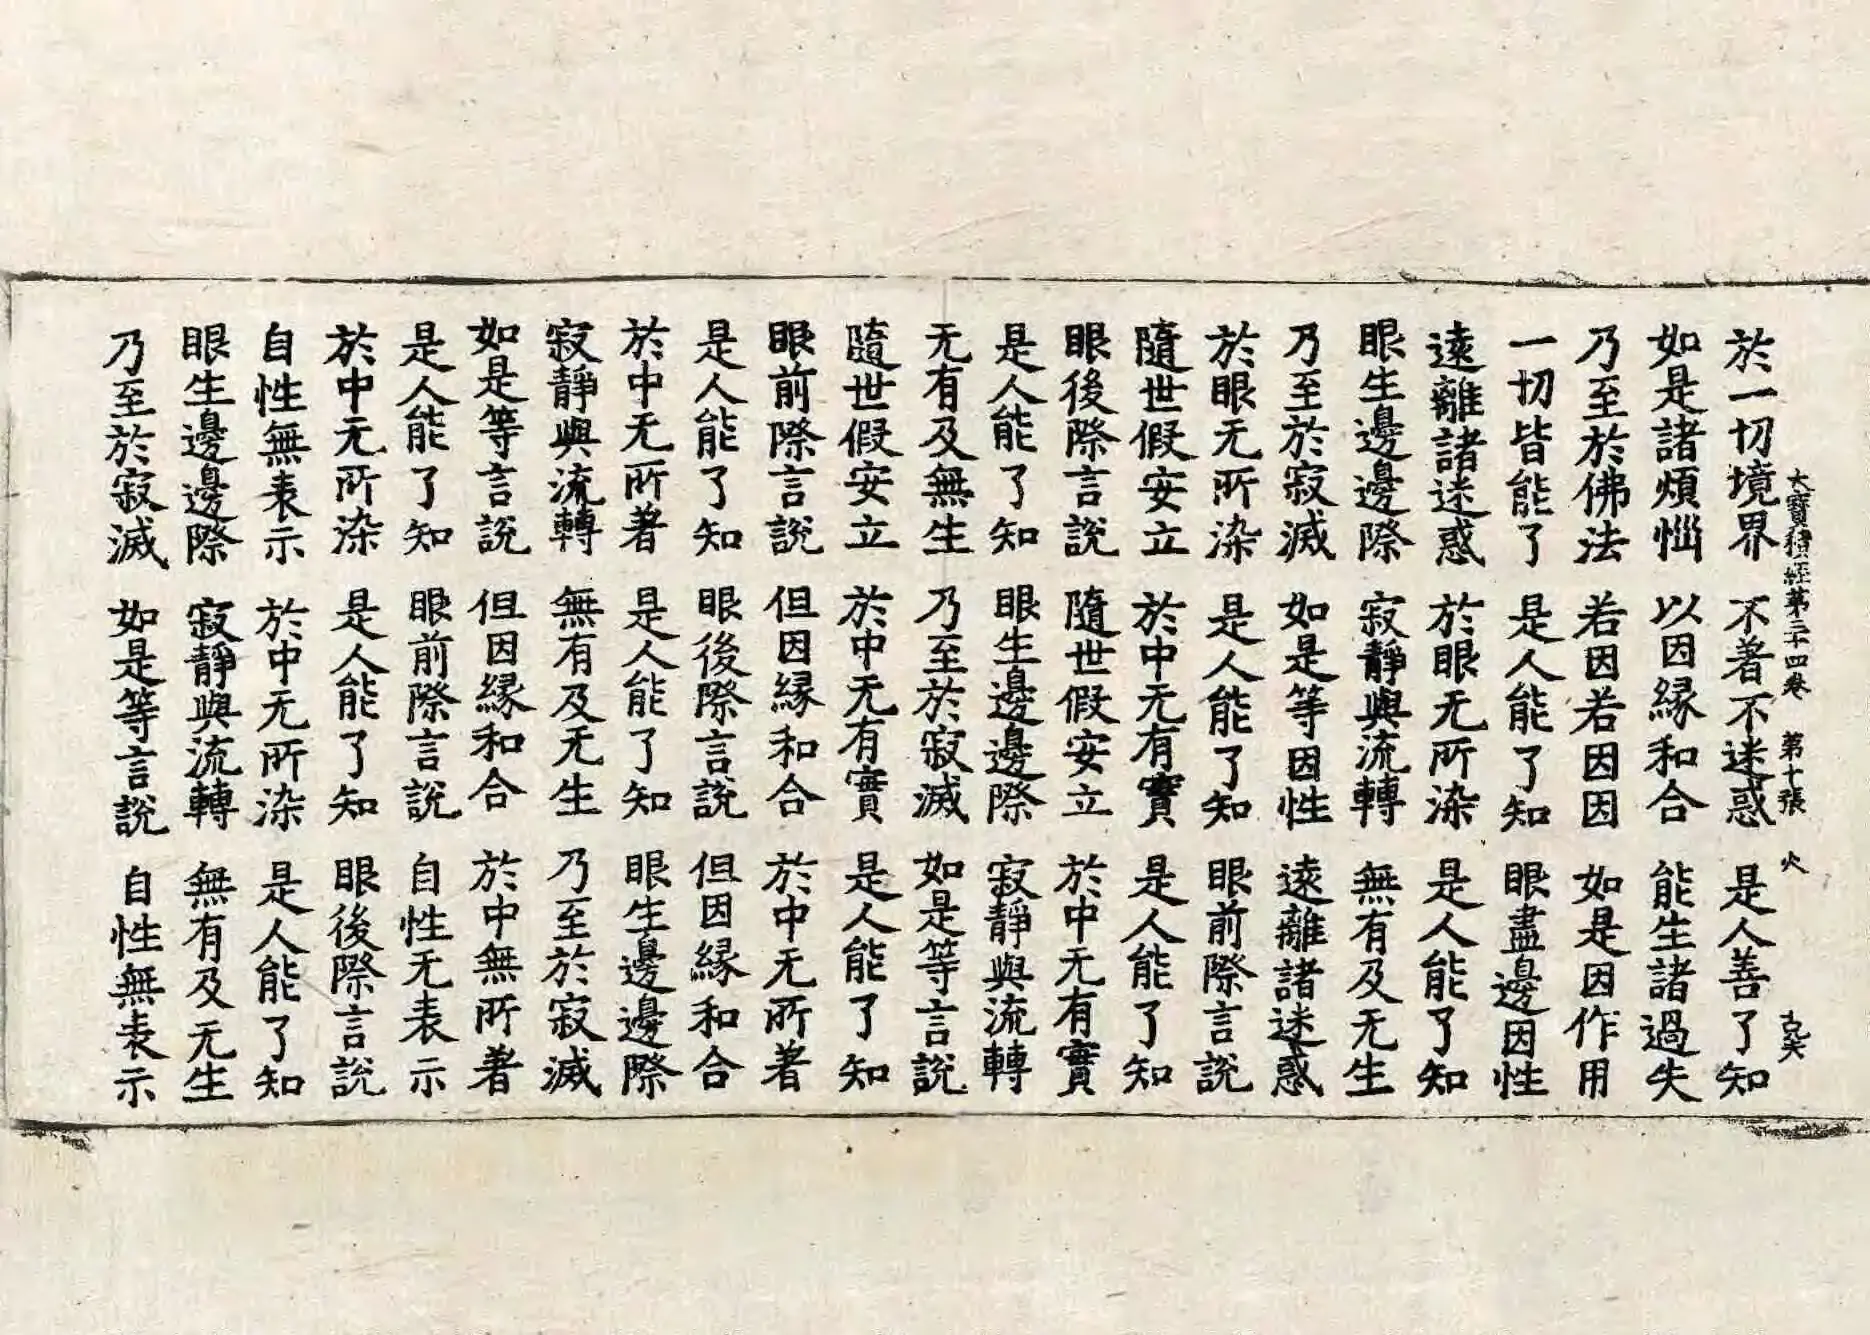 大寶積經第三十四卷　第十張　火
於一切境界　不著不迷惑　是人善了知
如是諸煩惱　以因縁和合　能生諸過失
乃至於佛法　若因若因因　如是因作用
一切皆能了　是人能了知　眼盡邊因性
遠離諸迷惑　於眼无所染　是人能了知
眼生邊邊際　寂靜與流轉　無有及无生
乃至於寂滅　如是等因性　遠離諸迷惑
於眼无所染　是人能了知　眼前際言說
隨世假安立　於中无有實　是人能了知
眼後際言說　隨世假安立　於中无有實
是人能了知　眼生邊邊際　寂靜與流轉
无有及無生　乃至於寂滅　如是等言說
隨世假安立　於中无有實　是人能了知
眼前際言說　但因縁和合　於中无所著
是人能了知　眼後際言說　但因縁和合
於中无所著　是人能了知　眼生邊邊際
寂靜與流轉　無有及无生　乃至於寂滅
如是等言說　但因縁和合　於中無所著
是人能了知　眼前際言說　自性无表示
於中无所染　是人能了知　眼後際言說
自性無表示　於中无所染　是人能了知
眼生邊邊際　寂靜與流轉　無有及无生
乃至於寂滅　如是等言說　自性無表示